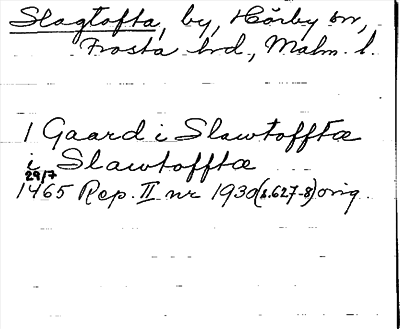 Slagtofta, by, Hörby sn,
Frosta hrd, Malm. l.
1 Gaard i Slawtofftæ
i Slawtofftæ
29/7
1465 Rep. II nr 1930 (s. 627-8) orig.